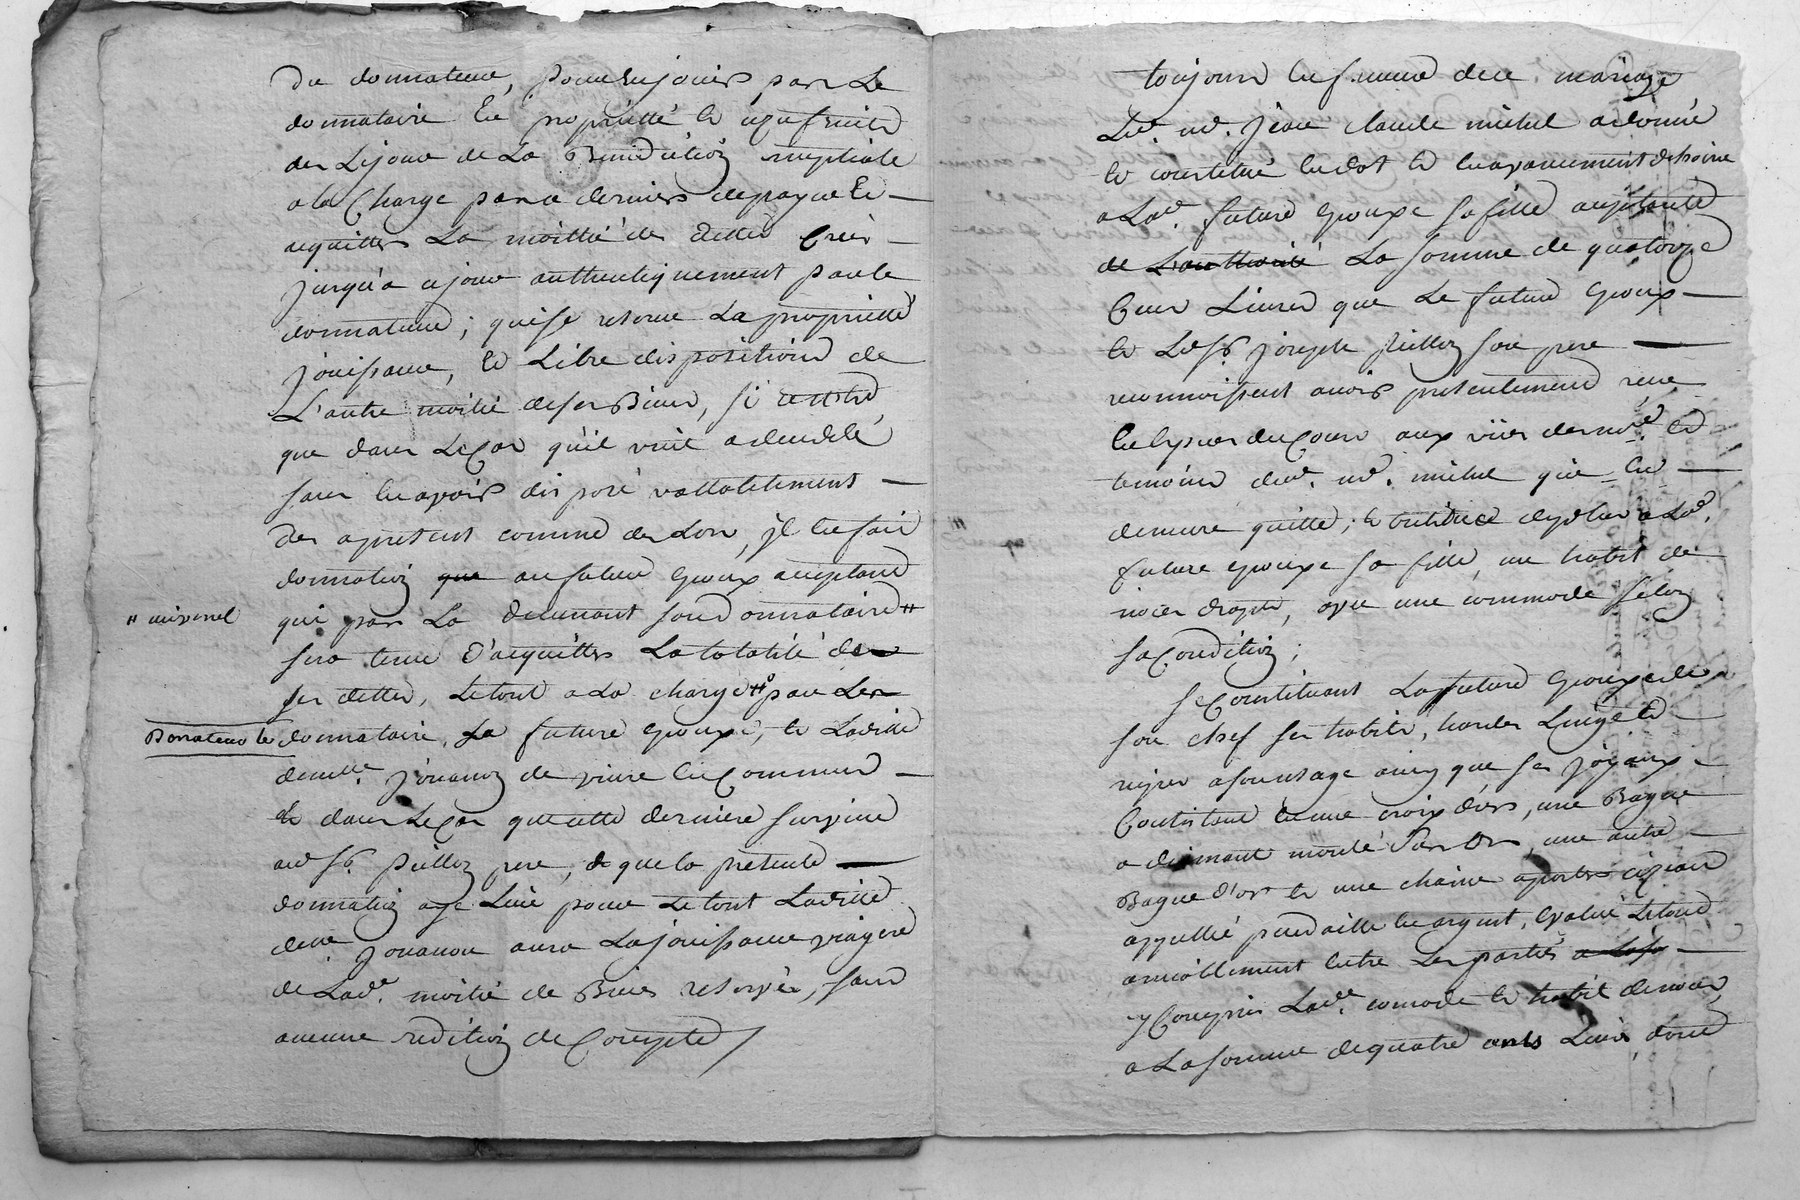 du donnateur, pour en jouir par le
donnataire en propriété et usufruit
des le jour de la Benediction nuptiale
a la Charge par ce dernier de payer et
aquitter la moitié des dettes Créés
jusqu'a ce jour authentiquement par le
donnateur; qui se reserve la propriété
jouissance, et Libre disposition de
L'autre moitié de ses Biens, si
que dans le Cas qu'il vint a deceder
sans en avoir disposé vallablement
des apresent comme des Lors, il en fait
donnation que au futur epoux acceptant
" universel
qui par la devenant son donnataire #
sera tenu d'aquitter la totalité de
ses dettes, le tout a la charge par les
Donnateur le
donnataire, la future epouse, et ladite
demlle. jouanon de vivre en Commun
et dans le Cas que cette derniere survive
au sr. pillon pere, et que la presente
donnation aye Lieu pour le tout ladite
delle. jouanon aura la jouissance viagere
de lade. moitié de Biens reservés, sans
aucune redition de Compte /
toujours en faveur de ce mariage
Led. me. jean claude michel a donné
et constitué en dot et en avancement d'hoirie
a lade. future epouse sa fille acceptante
de l'authorité la somme de quatorze
Cens Livres que le futur epoux
et led. sr. joseph pillon son pere
reconnoissent avoir presentement reçue
en especes du Cours aux vües des nres. et
temoins dud. me. michel qui en
demeure quitte; et outre ce de plus a lade.
future epouse sa fille, un habit de
noces drapés, avec une commode selon
sa Condition;
se Constituant la future epouse de
son chef ses habits, hardes linge et
nipes a son usage ainsy que ses joyaux
Consistant en une croix d'or, une Bague
a diamant monté sur or, une autre
Bague d'or et une chaine a porter ciseaux
appellé pendaille en argent, evalué le tout
amiablement entre les parties a la so
y Compris lade. comode et habit de noces,
a la somme de quatre cents Livres, dont